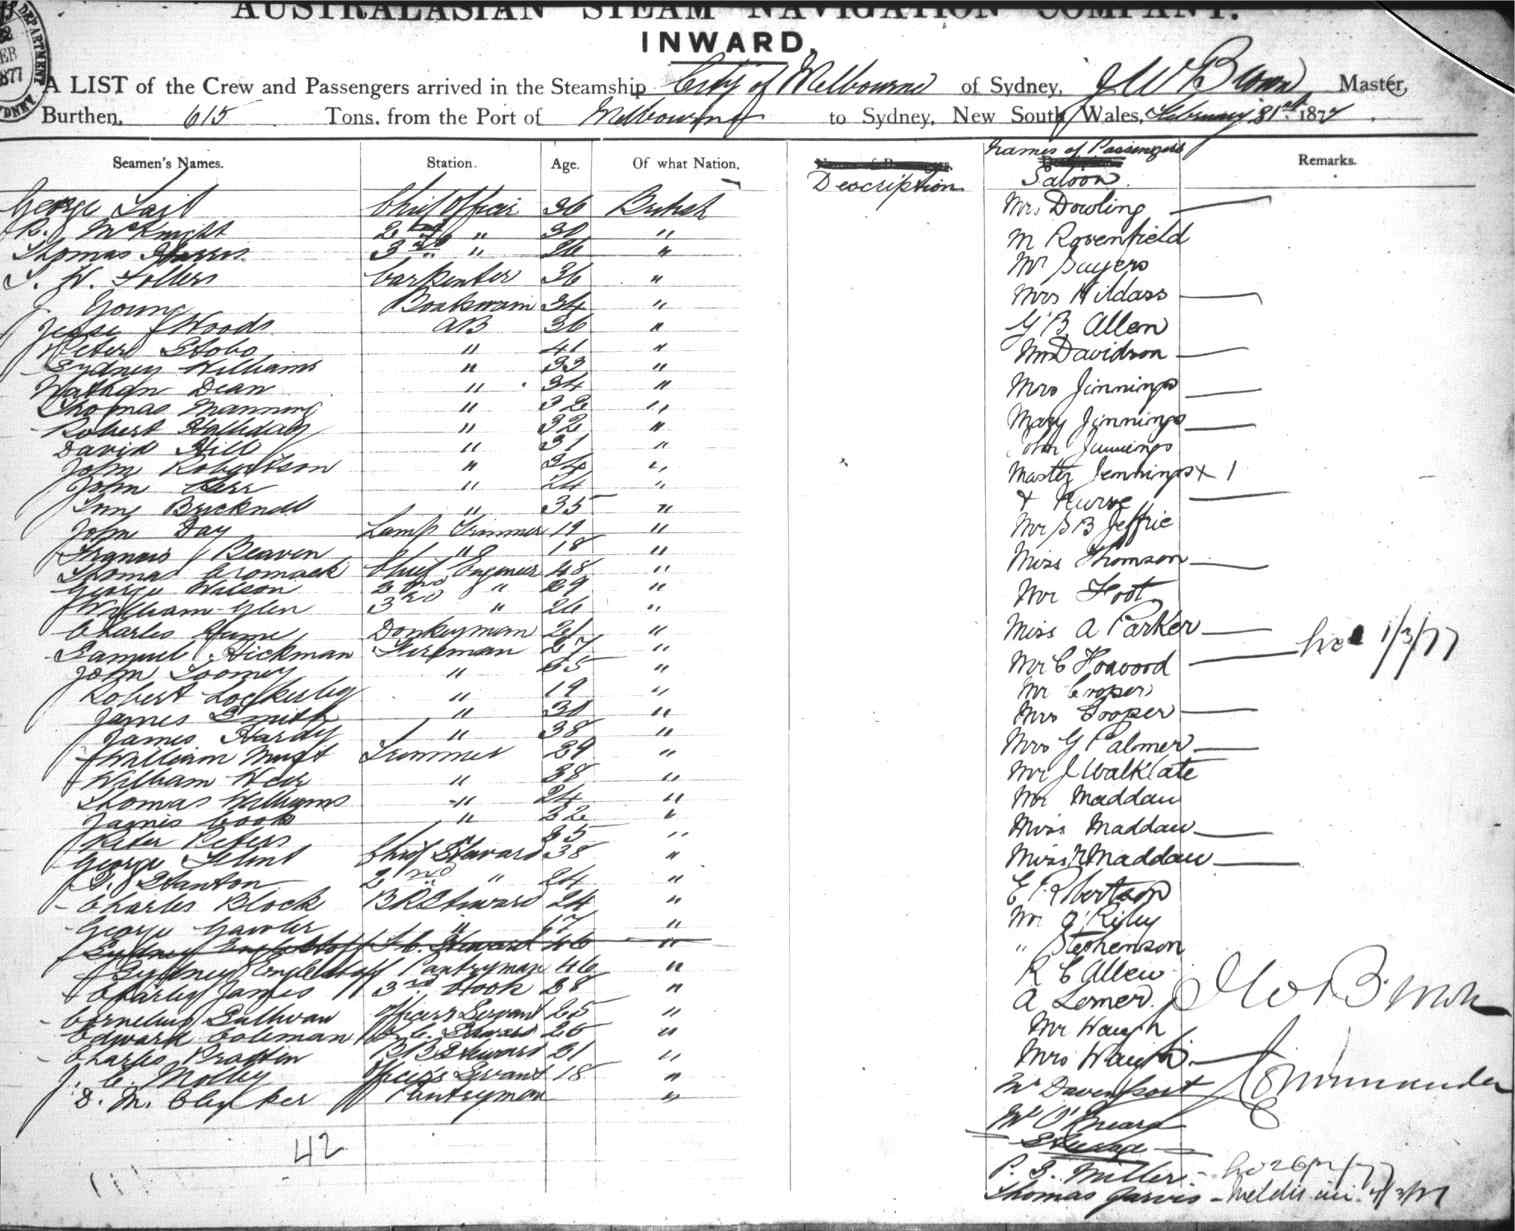 AUSTRALASIAN STEAM NAVIGATION COMPANY.
INWARD.
DEPARTMENT
1877
SYDNEY
A LIST of the Crew and Passengers arrived in the Steamship City of Melbourne of Sydney, J W Brown Master,
Burthen, 615 Tons, from the Port of Melbourne to Sydney, New South Wales, February 1877
Seamen's Names. Station. Age. Of what Nation. Description Names of Passengers Remarks.
Saloon
George Chief Officer 36 British Mrs Dowling
R. McKnight 2nd " 30 " M Rosenfield
Thomas Harris 3rd " 26 " Mr Sayers
Carpenter 36 " Mrs Hildass
J. Young Boatswain 34 "
Jesse Woods AB 36 " G B Allen
Peter Stobo " 41 " Davidson
Sydney Williams " 33 "
Nathan Dean " 34 " Mrs Jinnings
Thomas Manning " 32 "
Robert Holliday " 32 " Mary Jinnings
David Hill " 31 " John Jinnings
John Robertson " 34 " Master Jennings x 1
John Kerr " 24 " + Nurse
Bricknell " 35 "
John Day Lamp Trimmer 19 " Mr S B Jeffrie
Francis Beaven " 18 "
Thomas Cromack Chief Engineer 48 " Miss Thomson
George Wilson 2nd " 29 " Mr Foot
William Glen 3rd " 26 "
Charles Hume Donkeyman 21 " Miss A Parker
Samuel Hickman Fireman 27 " Mr C Foxwood 1/3/77
John Toomey " 35 "
Robert Lockerby " 19 " Mr Cooper
James Smith " 30 " Mrs Cooper
James Hardy " 38 "
William Trimmer 29 " Mrs G Palmer
William Weir " 38 " Mr J Walklate
Thomas Williams " 24 " Mr Maddau
James Cook " 22 " Miss Maddau
Peter Peters 35 "
George Flint Chief Steward 38 " Miss Maddau
Stanton 2nd " 24 " E Robertson
Charles Block Steward 24 "
George Gawler " 17 " Mr O'Riley
Sydney Steward 46 " " Stephenson
Sydney Pantryman 46 " R C Allen
Charley James 3rd Cook 28 " A Lemer J W Brown
Cornelius Sullivan Officers Servant 25 " Mr Waugh
Edward Coleman Steward 26 "
Charles Steward 21 " Mrs Waugh Commander
J. C. Molley Officers Servant 18 " Mr Davenport
D. M. Pantryman "
42
P. S. Miller
Thomas Jarvis